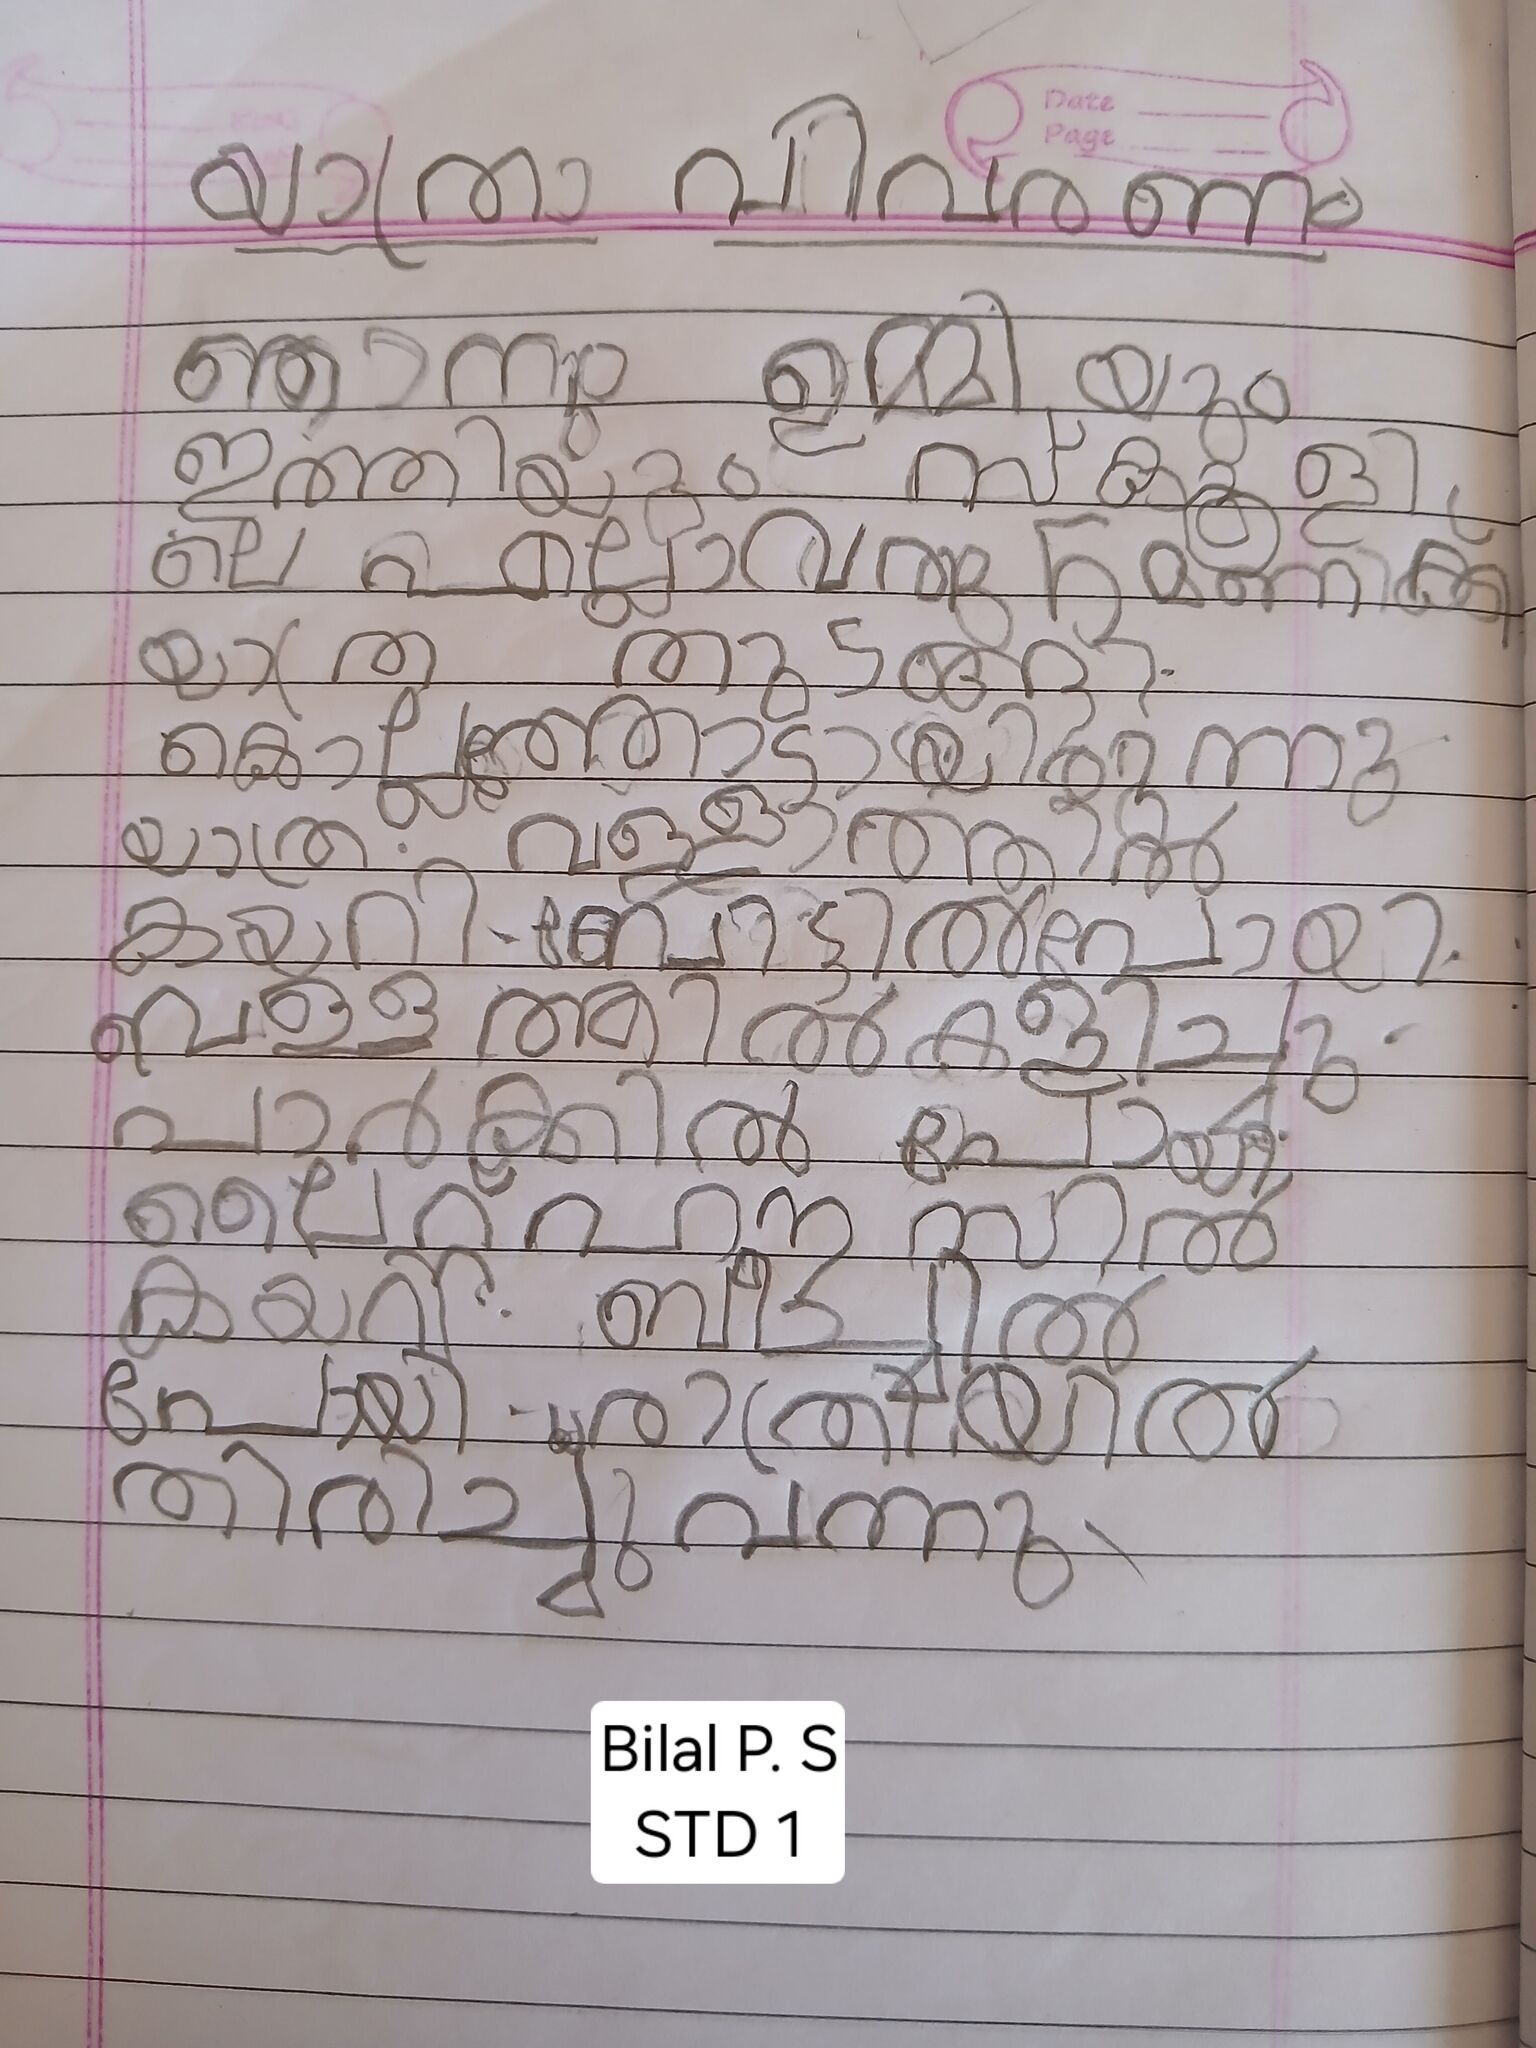 Date
Page
യാത്രാ വിവരണം
ഞാനും ഉമ്മിയും
ഇത്തിയും സ്കൂളി
ലെ എല്ലാവരും 5 മണിക്ക്
യാത്ര തുടങ്ങി.
കൊല്ലത്തോട്ടായിരുന്നു
യാത്ര. വള്ളത്തിൽ
കയറി. ബോട്ടിൽ പോയി.
വെള്ളത്തിൽ കളിച്ചു.
പാർക്കിൽ പോയി.
ലൈറ്റ് ഹൗസിൽ
കയറി. ബീച്ചിൽ
പോയി. രാത്രിയിൽ
തിരിച്ചു വന്നു.
Bilal P. S
STD 1